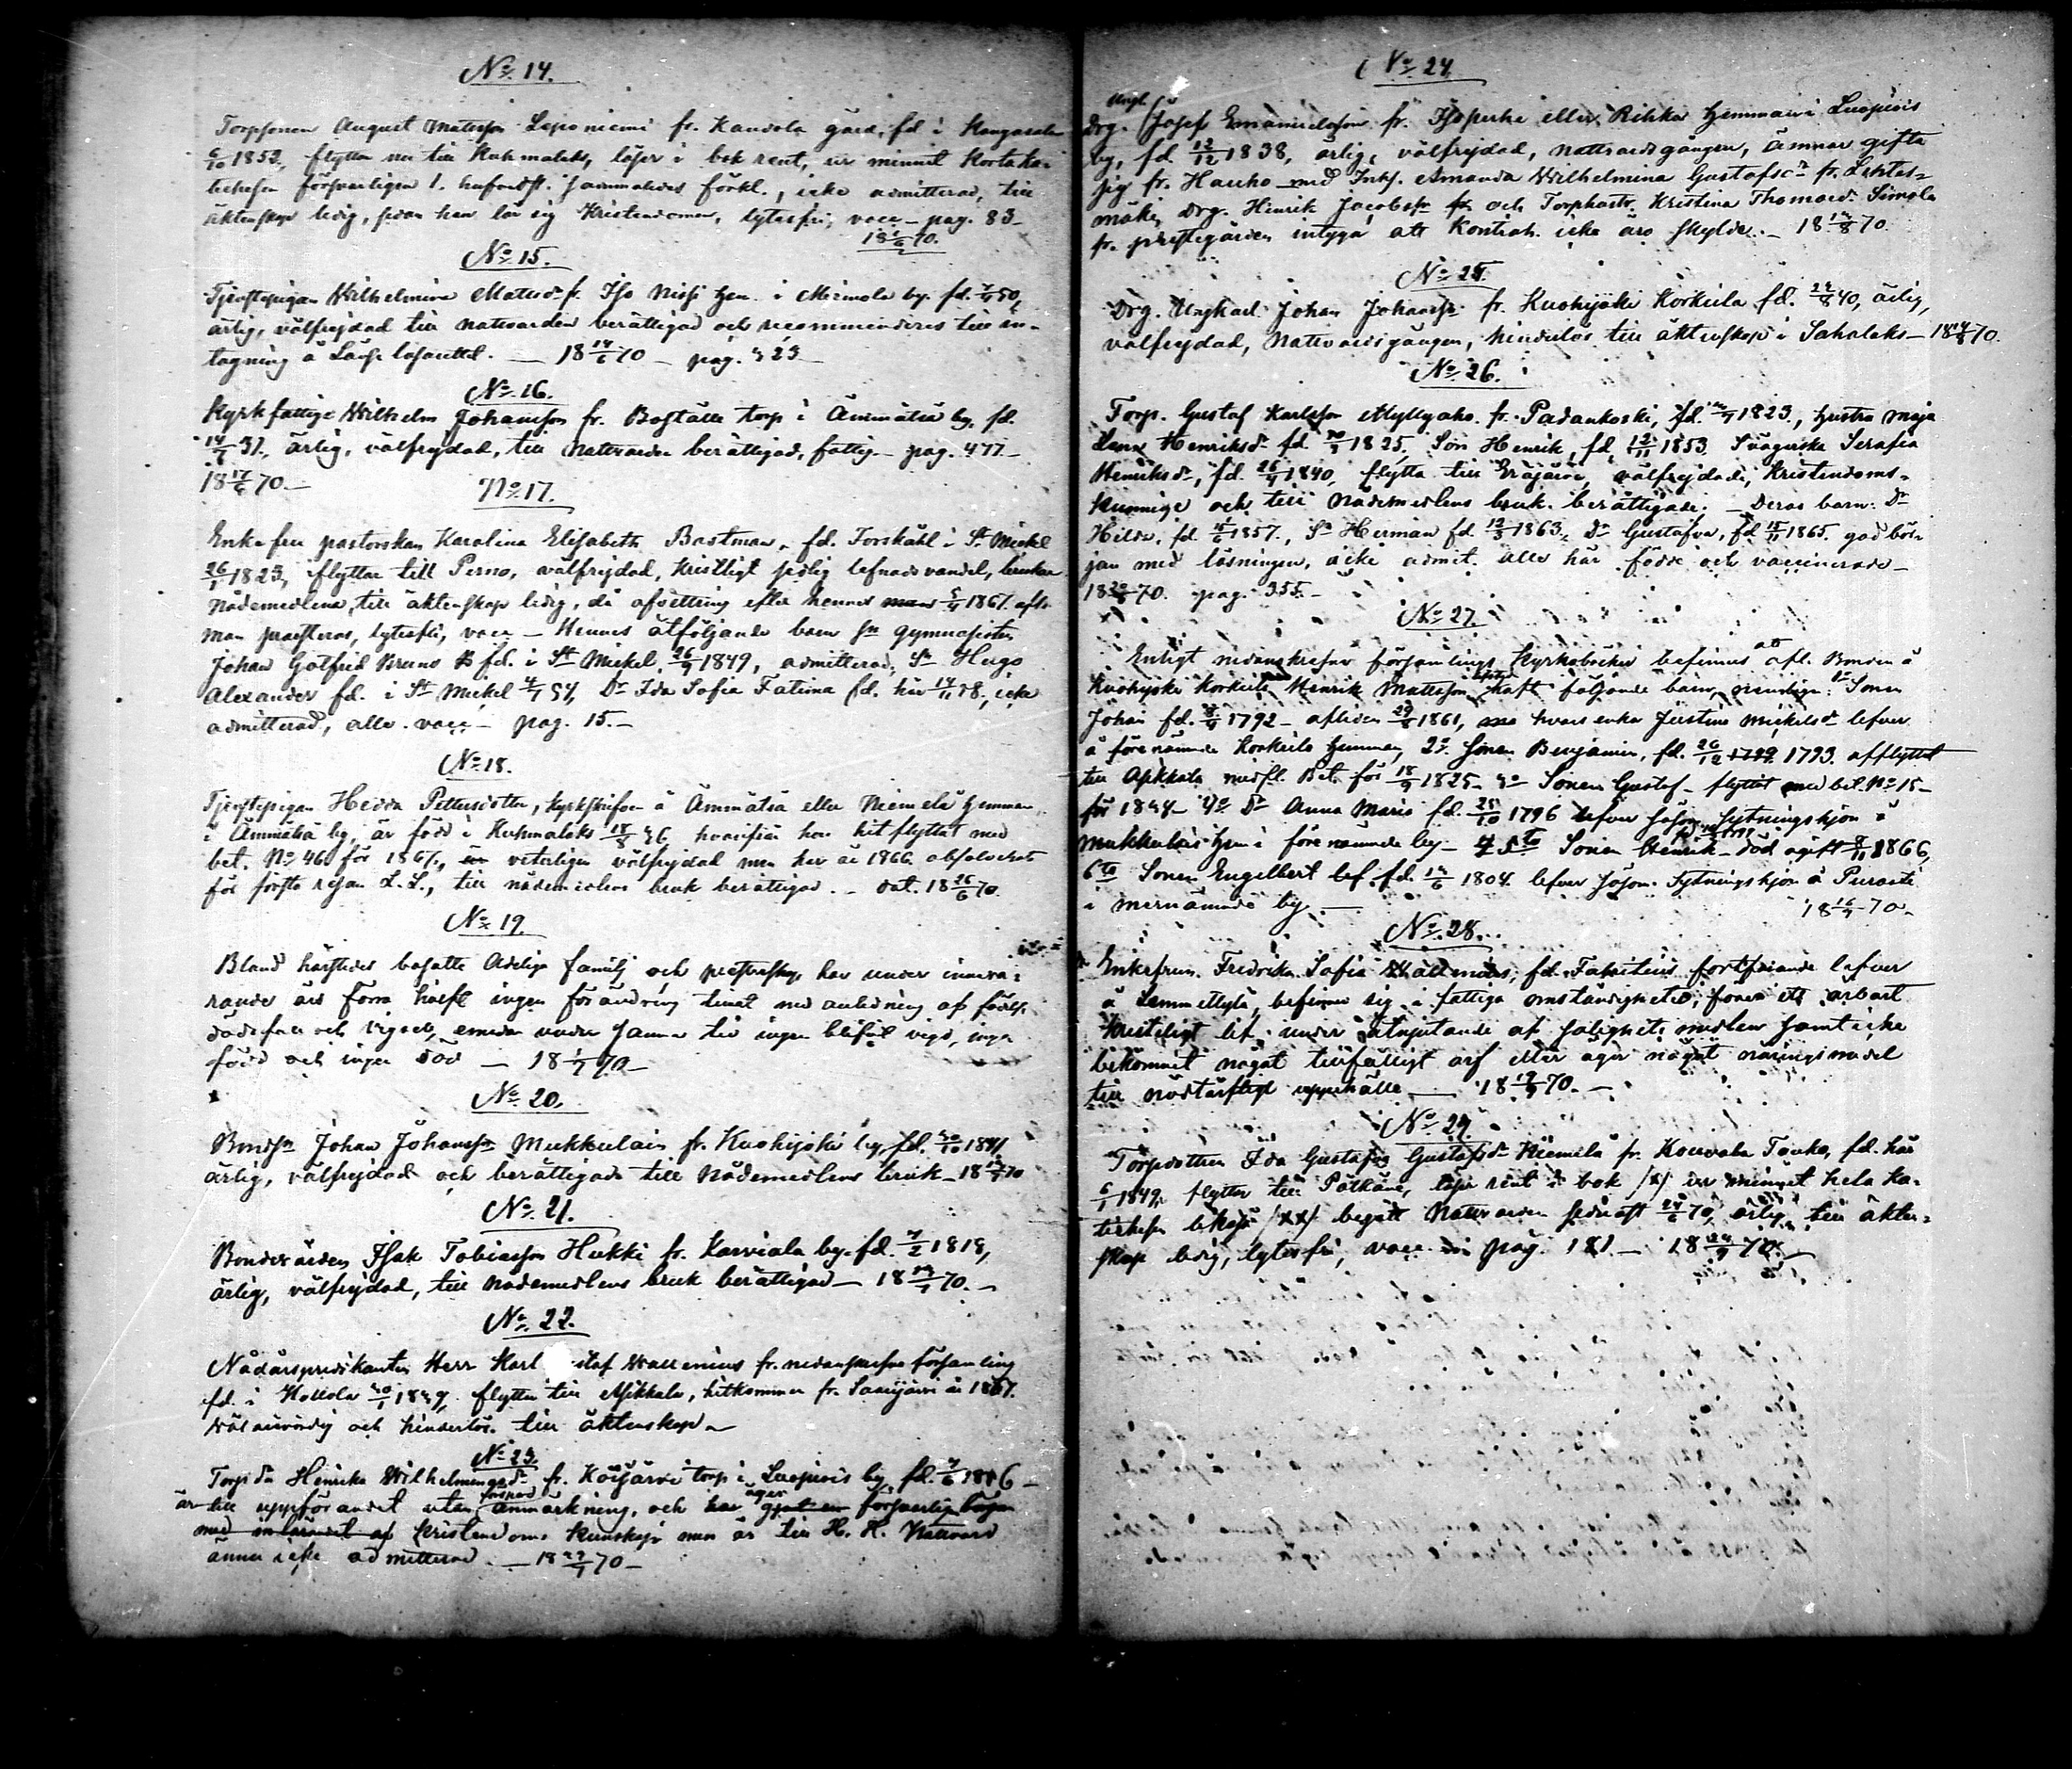 No. 14.
Torpsonen August Matsson Leponiemi fr. Kandola gård, fd i Kangasala
6/10 1853, flyttar nu till Kuhmalaks, läser i bok rent, ur minnet korta ka-
tekesen försvarligen 1. hufvudst. jemmalides förkl., icke admitterad, till
äktenskap ledig, sedan han lär sig Kristendomen, lytesfri, vacc. pag. 83
18 70.
No. 15.
Tjenstepigan Wilhelmina Matsdr fr. Iso Nissi hem. i Merimola by. fd. 50,
ärlig, välfrejdad till nattvarden berättigad och recommenderas till in-
tagning å Länse lasarettet. — 18 14/6 70 — pag. 323
No. 16.
Kyrkfattige Wilhelm Johansson fr. Boställe torp i Ämmätsä by, fd.
14/6 31., ärlig, välfrejdad, till Nattvarden berättigad, fattig - pag. 477 -
18 17/6 70. —
No. 17.
Enkefru pastorskan Karolina Elisabeth Bastman, fd. Forskåhl i St Mickel
26/1 1823, flyttar till Perno, välfrejdad, kristligt sedlig lefnadsvandel, brukar
Nådemedlena, till äktenskap ledig, då afvittring efter hennes 5/4 1867. afl.
man presteras, lytesfri, vacc. — Hennes åtföljande barn sn gymnasisten
Johan Gotfrid Bruno B fd. i St Mickel, 26/9 1849, admitterad, Sn Hugo
Alexander fd. i St Mickel 4/7 54, Dr Ida Sofia Fatima fd. här 14/11 58, icke
admitterad, alla vacc - pag. 15. -
No. 18.
Tjenstepigan Hedda Pettersdotter, kyrkskrifven å Ämmätsä eller Niemelä hemman
i Ämmätsä by, är född i Kuhmalaks 18/8 36, hvarifrån hon hit flyttat med
bet. No 46 för 1867, är veterligen välfrejdad men har år 1866 absolverats
för första resan L.L., till nådemedlens bruk berättigad. — dat. 18 26/6 70.
No. 19.
Bland härstedes bosatte Adeliga familj och presterskap har under inneva-
rande års förra hälft ingen förändring timat med anledning af födelse
dödsfall och vigsel, emedan under samma tid ingen blifvit vigd, ingen
född och ingen död — 18 1/7 70 —
No. 20.
Bondsn Johan Johansson Mukkulais fr. Kuohijoki by, fd. 30/10 1841,
ärlig, välfrejdad och berättigade till Nådemedlens bruk — 18 70
No. 21.
Bondevärden Isak Tobiasson Hukki fr. Karviala by. fd. 7/2 1818,
ärlig, välfrejdad, till nådemedlens bruk berättigad — 18 70. -
No. 22.
Nådårspredikanten Herr Karl staf Wallenius fr. nedanskrefne församling
fd. i Hollola 30/1 1837, flyttar till Asikkala, hitkommen fr. Saarijärvi år 1867.
Wäl ansvördig och hinderlös till äktenskap —
No. 23.
Torp dr Henrika Wilhelmina dr fr. Koijärvi torp i Luopiois by, fd. 7/6 1846 —
är till uppförandet utan anmärkning, och har gjort en försvarlig början
med inlärandet af kristendoms kunskap men är till H. H. Nattvard
ännu icke admitterad. — 18 29/7 70 —
No 24.
Ungk.
Drg. Josef Emanuelsson fr. Isoperhe eller Rihko hemman i Luopiois
by, fd. 12/12 1838, ärlig, välfrejdad, nattvardsgången, ämnar gifta
sig fr. Hauho med Inhs. Amanda Wilhelmina Gustafsdr fr. Lehtes-
mäki, Drg. Henrik Jacobsson och Torphustr. Kristina Thomasd. Simola
fr. prestegården intyga att Kontrah. icke äro skylda. — 18 14/8 70.
No. 25.
Drg. Ungkarl Johan Johansson fr. Kuohijoki Korkiila fd. 24/8 40, ärlig,
välfrejdad, Nattvardsgången, hinderlös till äktenskap i Sahalaks — 18 14/8 70.
No. 26.
Torp. Gustaf Karlsson Myllyaho fr. Padankoski, fd. 1823, hustru Maja
Lena Henriksdr fd. 1825, Son Henrik, fd. 12/11 1853 Svägerska Serafia
Henriksdr, fd. 26/4 1840, flytta till Eräjärvi, välfrejdade, Kristendoms-
kunnige och till nådemedlens bruk berättigade. — Deras barn: Dr
Hilda, fd. 15/6 1857, Sn Herman fd 12/3 1863, Dr Gustafva, fd 15/11 1865. god bör-
jan med läsningen, icke admit. alla här födde och vaccinerade —
18 20/8 70. pag. 355. -
No. 27.
Enligt nedanskrefne församlings kyrkoböcker befinnes att afl. Bonden å
Kuohijoki Korkiila Henrik Mattsson haft följande barn, nemligen: 1o Sonen
Johan fd. 1792 - afliden 29/8 1861, hvars enka Justina Mickelsdr lefver
å förenämnde Korkiila hemman, 2o. Sonen Benjamin, fd. 26/12 1799 1793 afflyttat
till Asikkala medfl. Bet. för 18/9 1825 3o Sonen Gustaf - flyttat med bet. No 15 -
för 1834 - 4o Dr Anna Maria fd. 25/10 1796 lefver såsom sytningshjon å
Mukkulais hem i förenämnde by - 5to Sonen Henrik - död ogift 8/11 1866,
6to Sonen Engelbert lef. fd. 12/6 1804. lefver såsom sytningshjon å Purasti
i mernämnde by. — 18 16/9 70.
No. 28.
Enkefrun Fredrika Sofia Wallenius, fd. Fabritius fortfarande lefver
å Lammettyla, befinner sig i fattiga omständigheter, förer ett arbart
kristeligt lif under åtnjutande af salighets medlen samt icke
bekommit något tillfälligt arf eller äger något näringsmedel
till nödtorftigt uppehälle — 18 19/9 70. —
No. 29.
Torpdottren Ida Gustafva Gustafsdr Niemilä fr. Kouvala Touko, fd. här
6/1 1849, flyttar till Pälkäne, läser rent i bok (x) ur minnet hela ka-
tekesen likaså (xx) begått Nattvarden sednast 24/6 70, ärlig, till äkten-
skap ledig, lytesfri, vacc. pag. 181 — 18 24/9 70. —